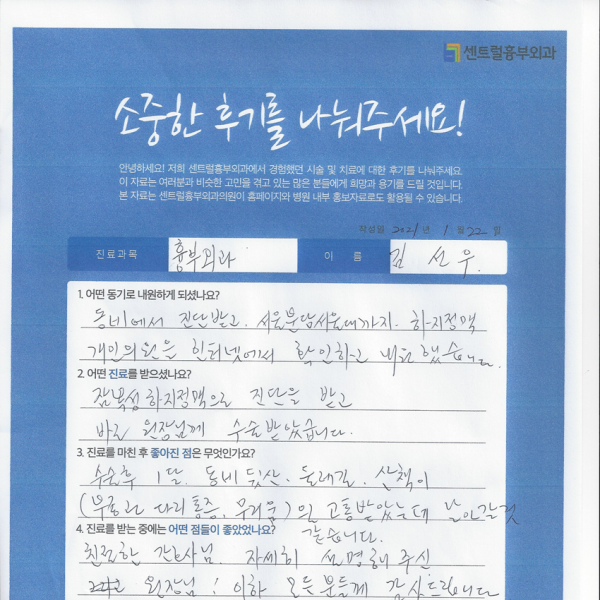 센트럴흉부외과
소중한 후기를 나눠주세요!
안녕하세요! 저희 센트럴흉부외과에서 경험했던 시술 및 치료에 대한 후기를 나눠주세요
이 자료는 여러분과 비슷한 고민을 겪고 있는 많은 분들에게 희망과 용기를 드릴 것입니다.
본 자료는 센트럴흉부외과의원이 홈페이지와 병원 내부 홍보자료로도 활용될 수 있습니다.
작성일 2021년 1월 22일
진료과목 흉부외과 이 름 김 선우.
1. 어떤 동기로 내원하게 되셨나요?
동네에서 진단받고. 하지정맥
개인의원을 인터넷에서 확인하고 내원했습니다.
2. 어떤 진료를 받으셨나요?
잠복성하지정맥으로 진단을 받고
바로 원장님께 수술받았습니다.
3. 진료를 마친 후 좋아진 점은 무엇인가요?
수술후 1달. 동네 뒷산. 둘레길. 산책이
다리통증. 무거움)의 고통받았는데 날아갈것
같습니다.
4. 진료를 받는 중에는 어떤 점들이 좋았었나요?
친절한 간호사님. 자세히 설명해주신
원장님! 이하 모든분들께 감사드립니다